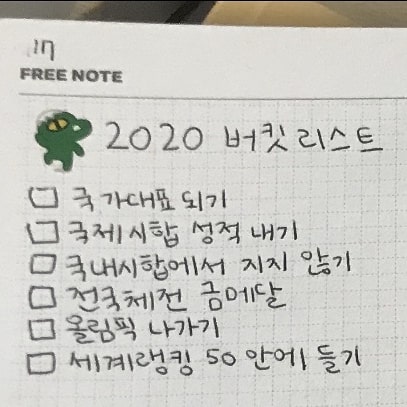 17
FREE NOTE
2020 버킷리스트
국가대표 되기
국제시합 성적 내기
국내시합에서 지지 않기
전국체전 금메달
올림픽 나가기
세계랭킹 50 안에 들기